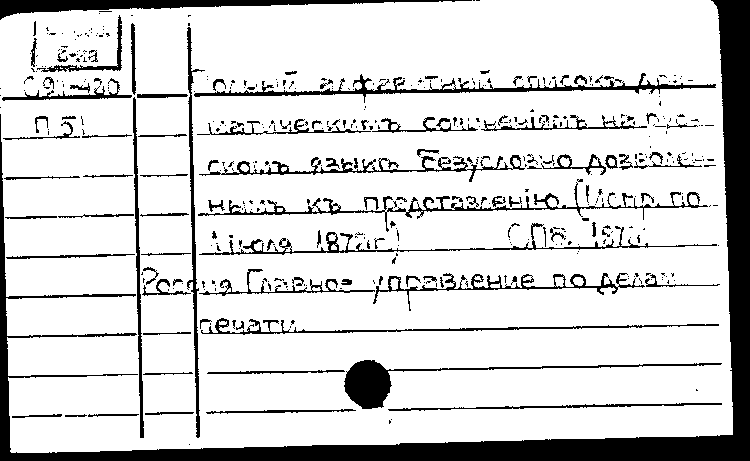 б-ка
П 51
Полный алфавитный списокъ дра-
матическимъ сочиненіямъ на рус-
скомъ языкѣ безусловно дозволен-
нымъ къ представленію. (Испр. по
1 іюля 1872г.) СПб.,
Россия. Главное управление по делам
печати.